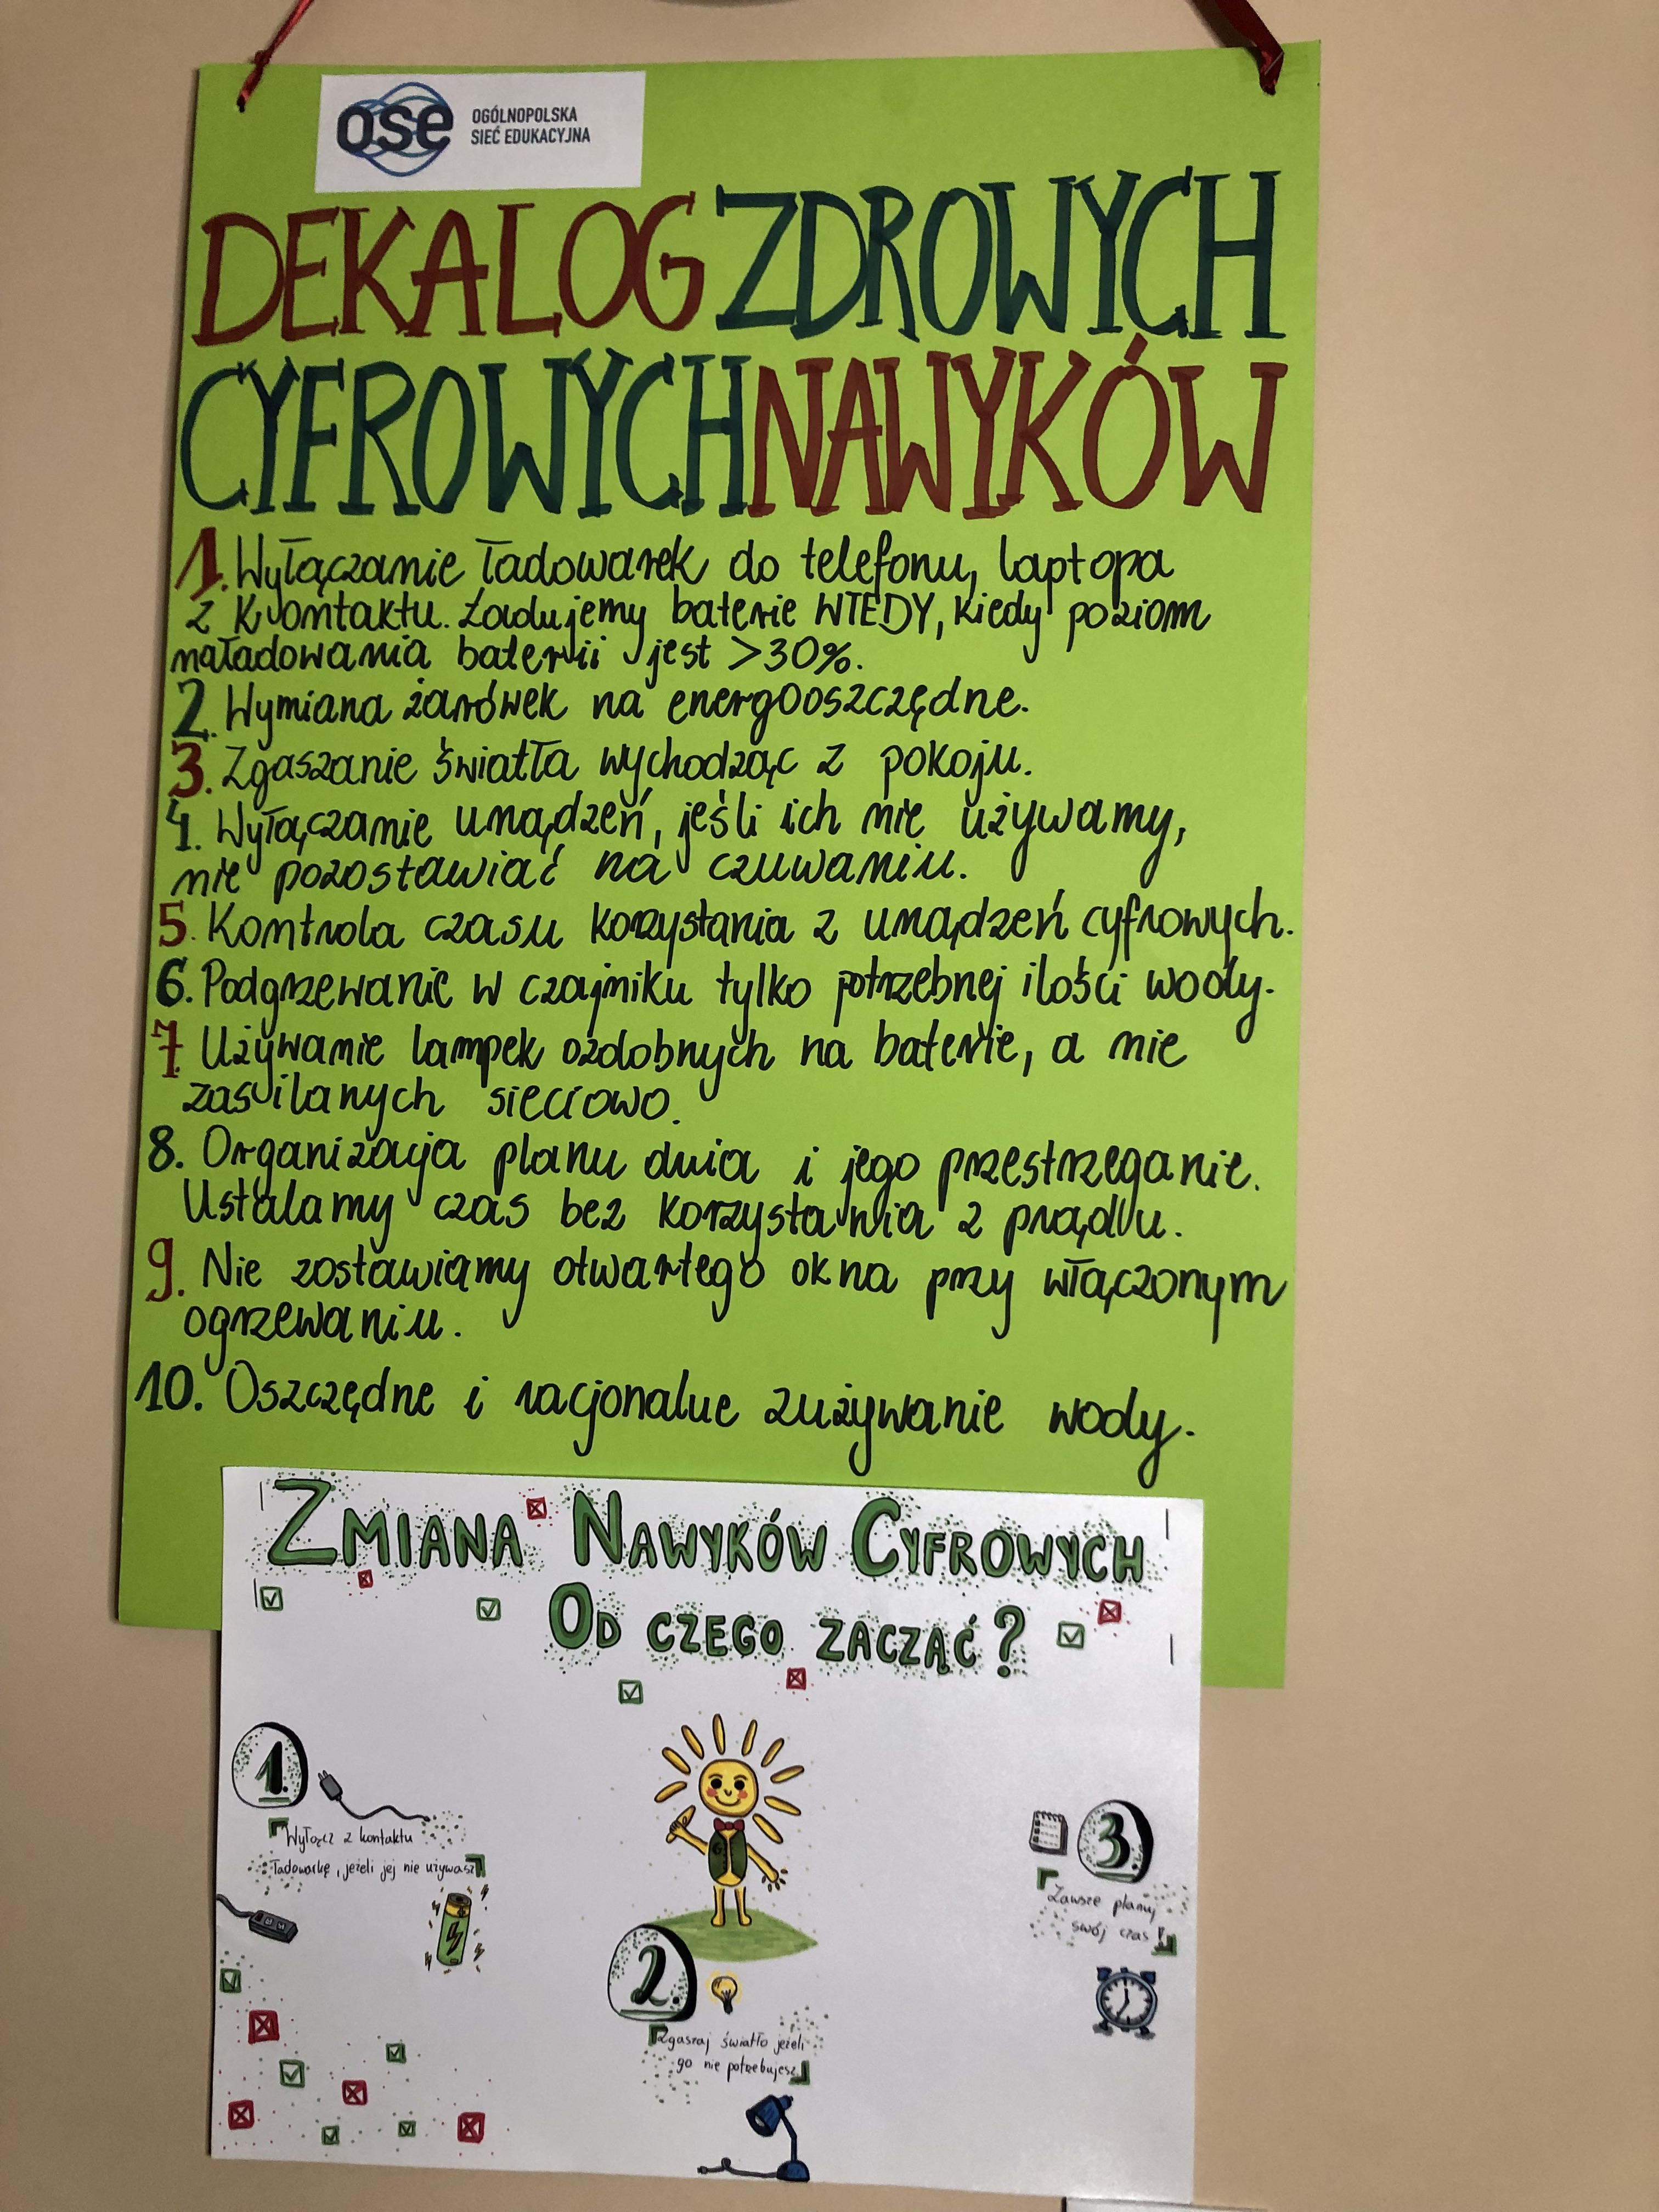 ose
OGÓLNOPOLSKA
SIEĆ EDUKACYJNA
DEKALOG ZDROWYCH
CYFROWYCH NAWYKÓW
1. Wyłączanie ładowarek do telefonu, laptopa
z kontaktu. Ładujemy baterie WTEDY, kiedy poziom
naładowania baterii jest >30%.
2. Wymiana żarówek na energooszczędne.
3. Zgaszanie światła wychodząc z pokoju.
4. Wyłączanie urządzeń, jeśli ich nie używamy,
nie pozostawiać na czuwaniu.
5. Kontrola czasu korzystania z urządzeń cyfrowych.
6. Podgrzewanie w czajniku tylko potrzebnej ilości wody.
7. Używanie lampek ozdobnych na baterie, a nie
zasilanych sieciowo.
8. Organizacja planu dnia i jego przestrzeganie.
Ustalamy czas bez korzystania z prądu.
9. Nie zostawiamy otwartego okna przy włączonym
ogrzewaniu.
10. Oszczędne i racjonalne zużywanie wody.
ZMIANA NAWYKÓW CYFROWYCH
OD CZEGO ZACZĄĆ?
1.
Wyłącz z kontaktu
ładowarkę, jeżeli jej nie używasz
2.
Zgaszaj światło jeżeli
go nie potrzebujesz
3.
Zawsze planuj
swój czas!